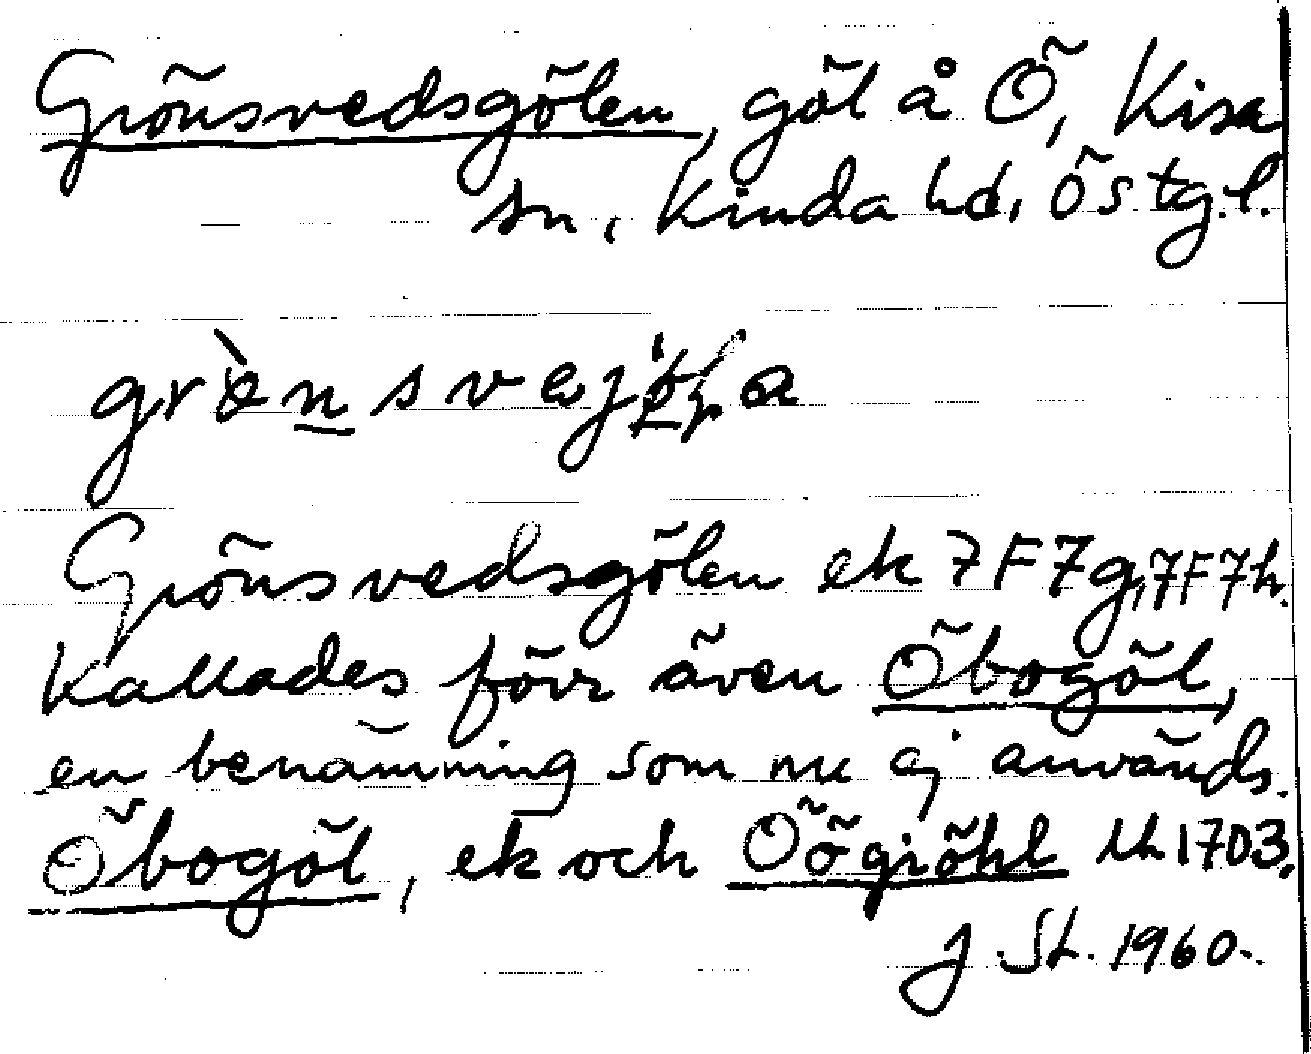 Grönsvedsgölen, göl å Ö, Kisa
sn, Kinda hd, Östg.l.
Grönsvedsgölen ek 7F7g, 7F7h.
Kallades förr även Öbogöl,
en benämning som nu ej används.
Öbogöl, ek och Öögiöhl 1703.
J St. 1960.